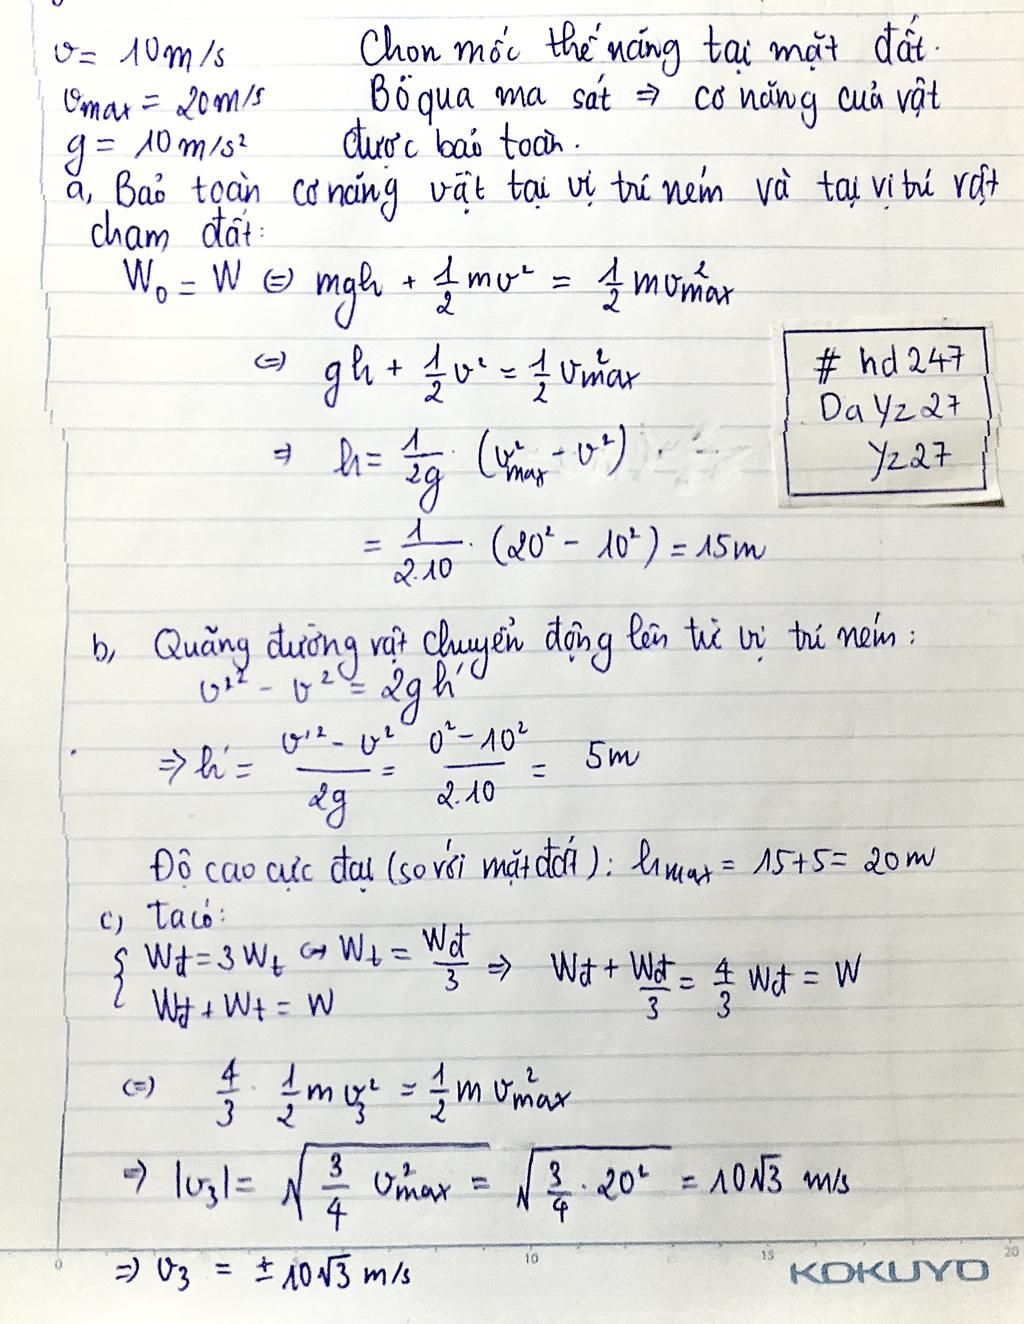 v = 10m/s Chọn mốc thế năng tại mặt đất.
vmax = 20m/s Bỏ qua ma sát ⇒ cơ năng của vật
g = 10m/s² được bảo toàn.
a, Bảo toàn cơ năng vật tại vị trí ném và tại vị trí vật
chạm đất:
W₀ = W ⇔ mgh + 1/2 mv² = 1/2 mv²max
⇔ gh + 1/2 v² = 1/2 v²max
⇒ h = 1/2g · (v²max - v²)
= 1/2.10 · (20² - 10²) = 15m
# hd247
Da Yz27
Yz27
b, Quãng đường vật chuyển động lên từ vị trí ném:
v'² - v² = 2gh'
⇒ h' = v'² - v²/2g = 0² - 10²/2.10 = 5m
Độ cao cực đại (so với mặt đất): hmax = 15+5 = 20m
c, Ta có:
{ Wđ = 3Wt ⇔ Wt = Wđ/3 ⇒ Wđ + Wđ/3 = 4/3 Wđ = W
Wđ + Wt = W
⇔ 4/3 · 1/2 m v₃² = 1/2 m v²max
⇒ |v₃| = √(3/4 v²max) = √(3/4 · 20²) = 10√3 m/s
⇒ v₃ = ±10√3 m/s
0 10 15 20
KOKUYO